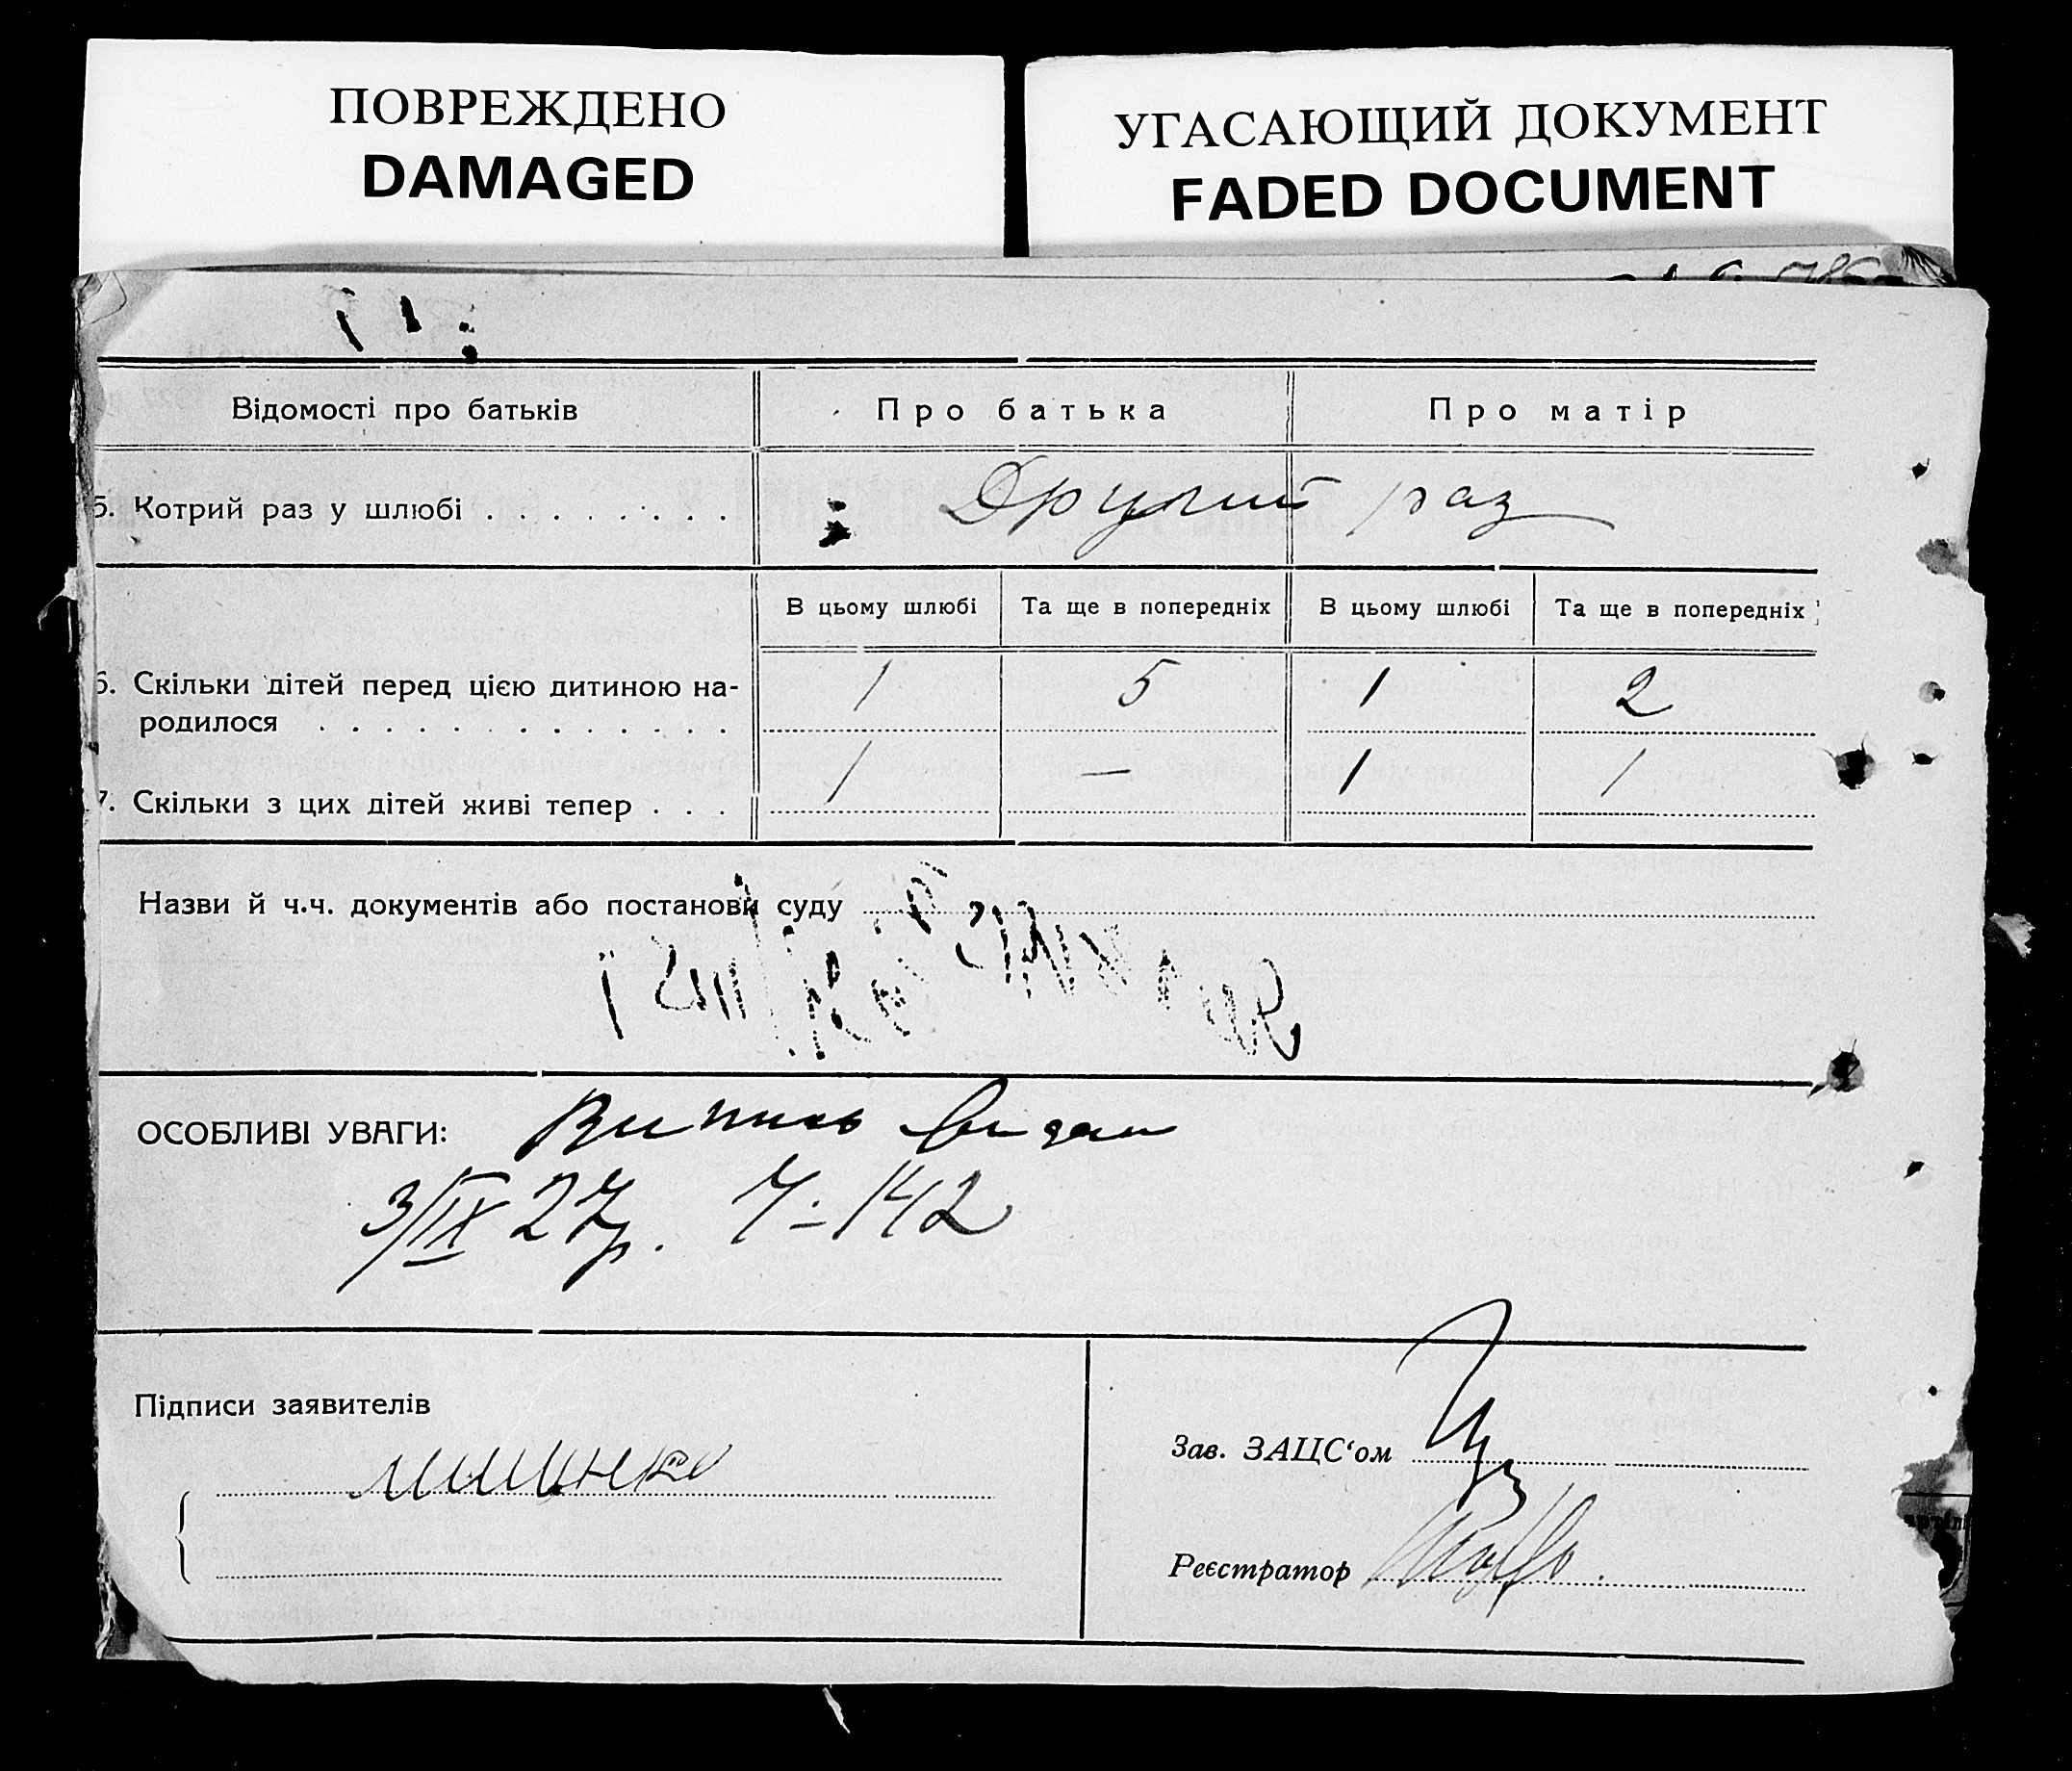 ПОВРЕЖДЕНО
DAMAGED
УГАСАЮЩИЙ ДОКУМЕНТ
FADED DOCUMENT
Відомості про батьків Про батька Про матір
5. Котрий раз у шлюбі Другий раз
В цьому шлюбі Та ще в попередніх В цьому шлюбі Та ще в попередніх
6. Скільки дітей перед цією дитиною на-
родилося 1 5 1 2
7. Скільки з цих дітей живі тепер 1 — 1 1
Назви й ч.ч. документів або постанови суду
ОСОБЛИВІ УВАГИ: Випись видан
3/IX 27р. Ч-142
Підписи заявителів
Зав. ЗАЦС‘ом
Реєстратор